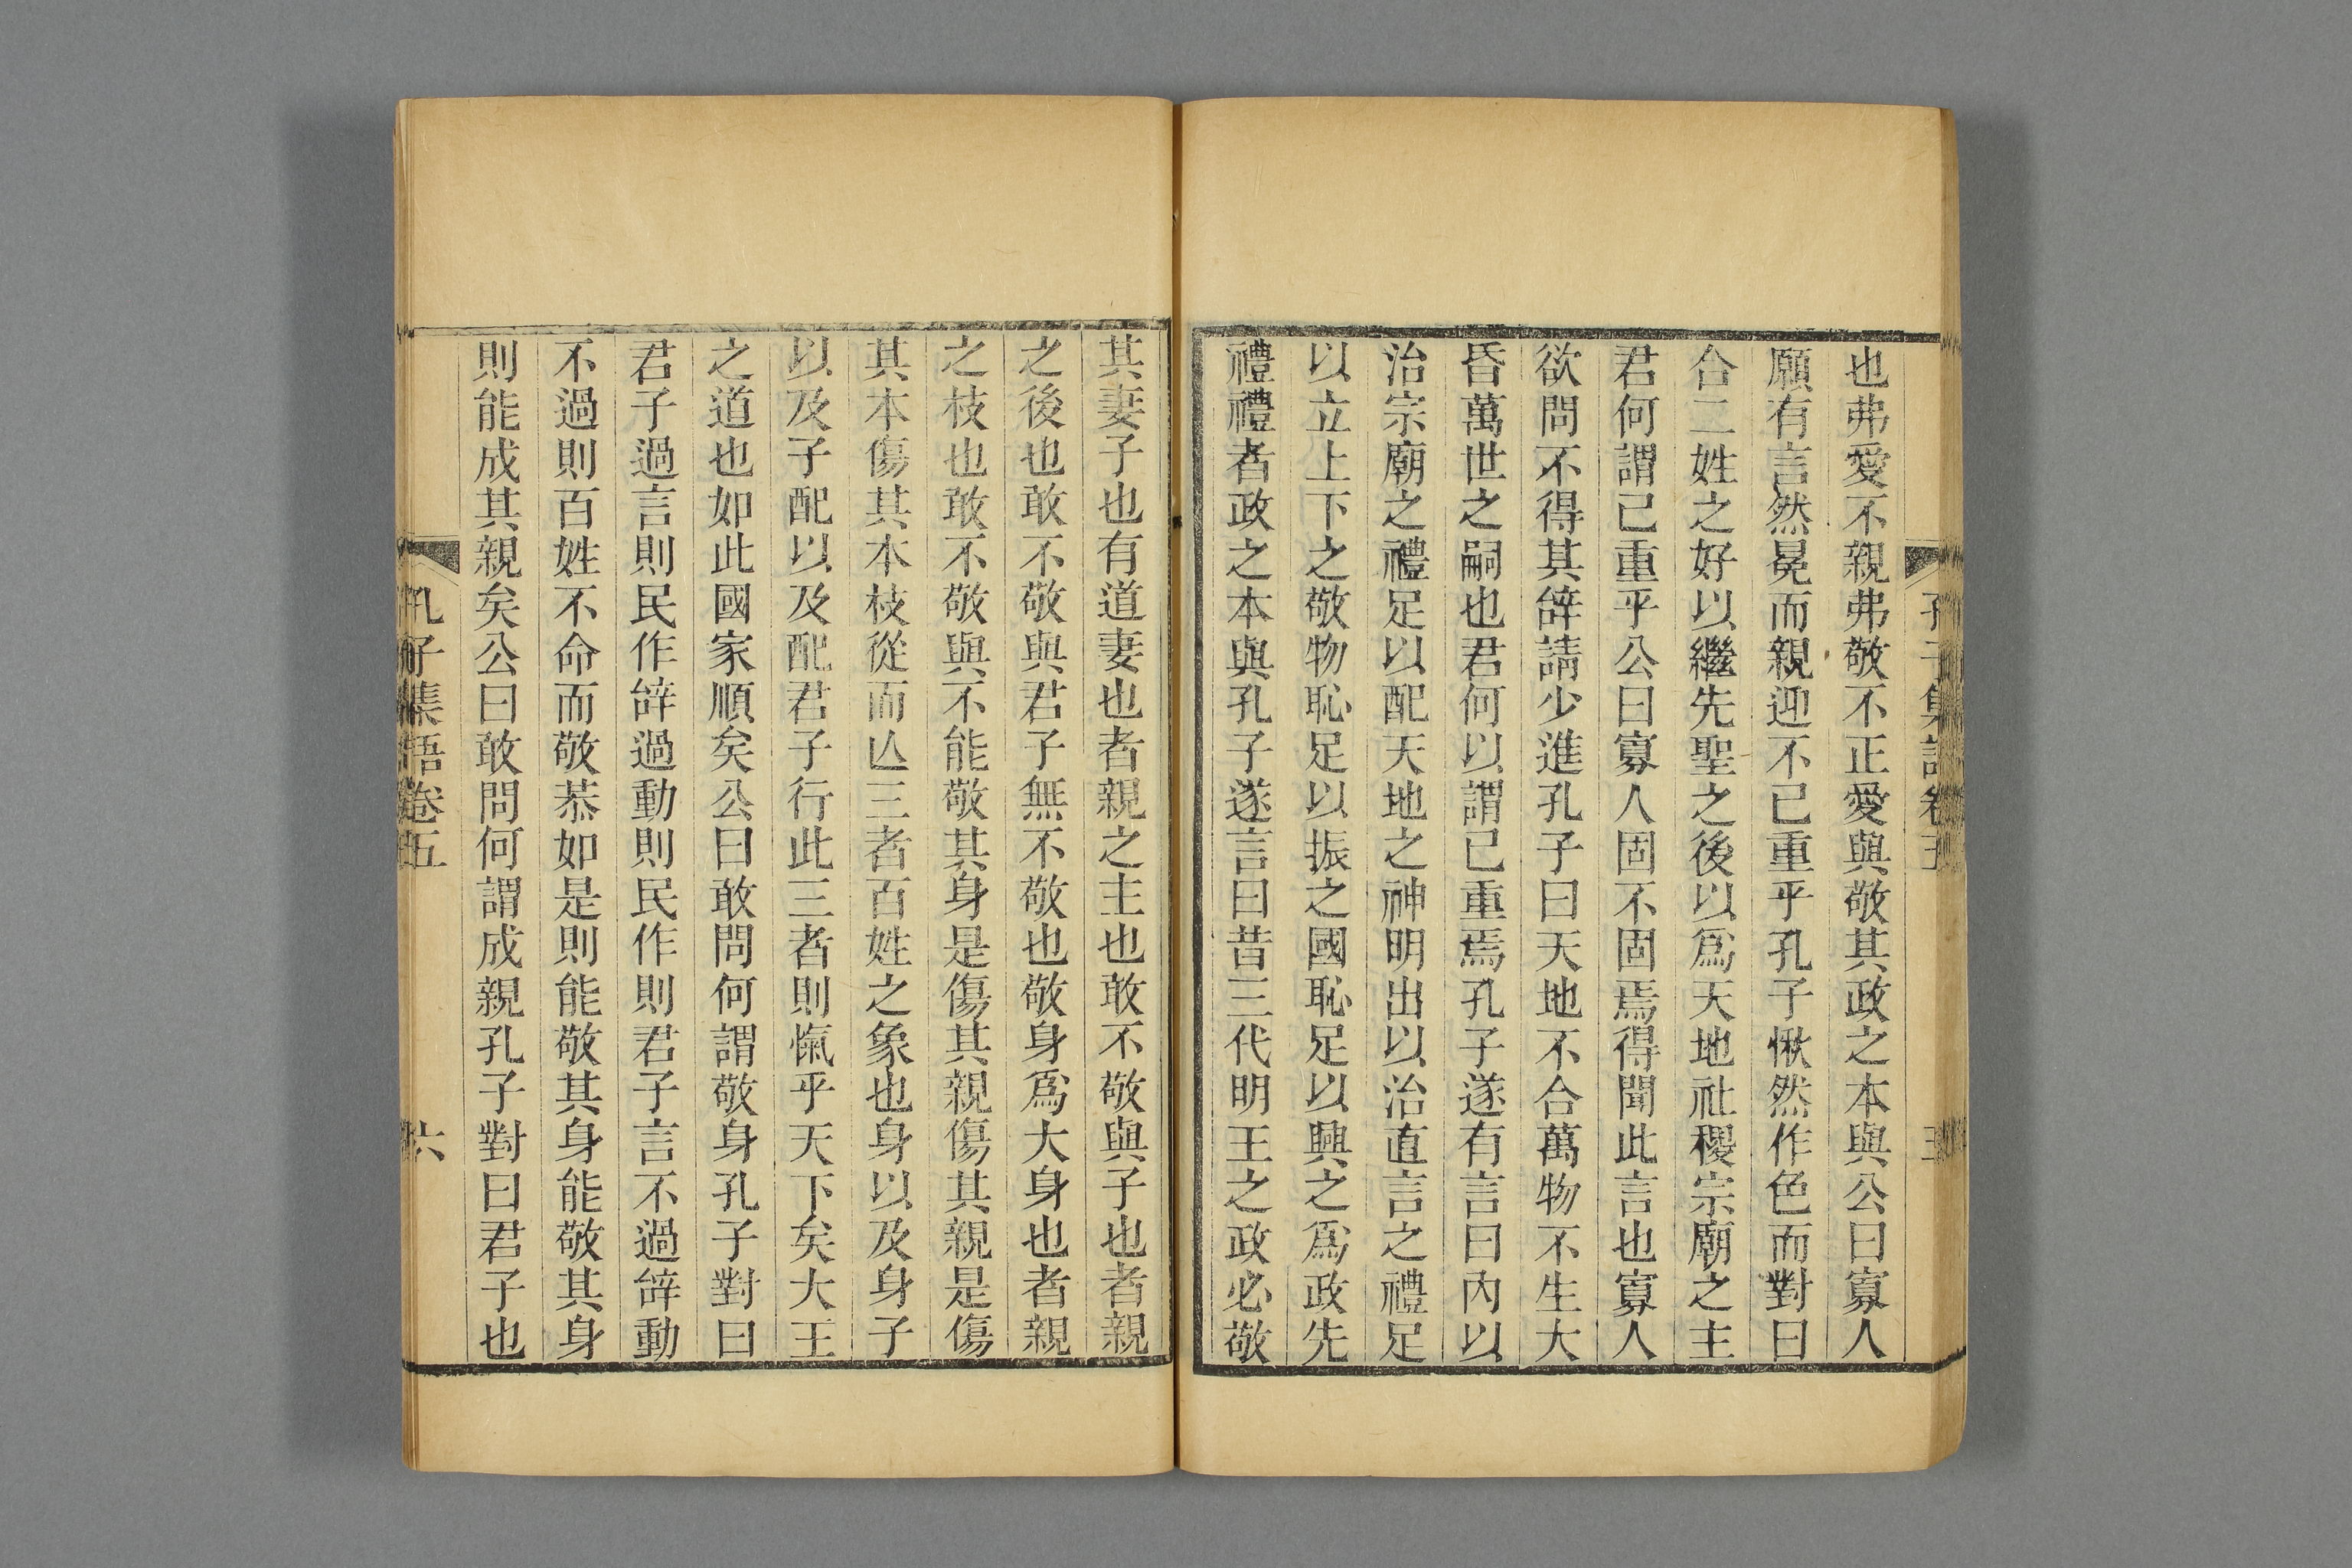 也弗愛不親弗敬不正愛與敬其政之本與公曰寡人
願有言然冕而親迎不已重乎孔子愀然作色而對曰
合二姓之好以繼先聖之後以爲天地社稷宗廟之主
君何謂已重乎公曰寡人固不固焉得聞此言也寡人
欲問不得其辭請少進孔子曰天地不合萬物不生大
昏萬世之嗣也君何以謂已重焉孔子遂有言曰內以
治宗廟之禮足以配天地之神明出以治直言之禮足
以立上下之敬物恥足以振之國恥足以興之爲政先
禮禮者政之本與孔子遂言曰昔三代明王之政必敬
其妻子也有道妻也者親之主也敢不敬與子也者親
之後也敢不敬與君子無不敬也敬身爲大身也者親
之枝也敢不敬與不能敬其身是傷其親傷其親是傷
其本傷其本枝從而亾三者百姓之象也身以及身子
以及子配以及配君子行此三者則愾乎天下矣大王
之道也如此國家順矣公曰敢問何謂敬身孔子對曰
君子過言則民作辭過動則民作則君子言不過辭動
不過則百姓不命而敬恭如是則能敬其身能敬其身
則能成其親矣公曰敢問何謂成親孔子對曰君子也
孔子集語卷五
六